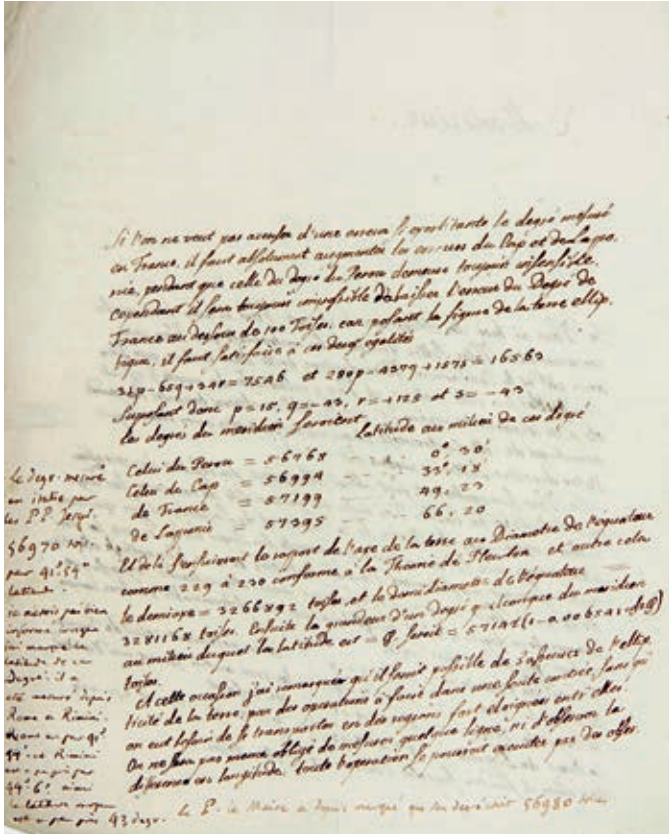 Si l'on ne veut pas accuser d'une erreur si exorbitante le degré mesuré
en France, il faut absolument augmenter les erreurs du Cap et de Lapo-
nie, pendant que celle du degré du Perou demeure toujours insensible.
cependant il sera toujours impossible d'abaisser l'erreur du Degré de
France au dessous de 100 Toises, car posant la figure de la terre ellip-
tique, il faut satisfaire à ces deux egalités
et
Suposant donc p=15, q=-43, r=+125 et s=-43
les degrés du meridien seroient Latitude au milieu de ces degré
Celui du Perou = 56768 0°. 30'
Celui de Cap = 56994 33°. 18'
de France = 57199 49. 23
de Laponie = 57395 66. 20
Et de là s'ensuivroit le raport de l'axe de la terre au Diametre de l'équateur
comme 229 à 230 conforme à la Theorie de Newton et outre cela
le demiaxe = 3266892 toises et le demidiametre de l'équateur
3281168 toises. Ensuite la grandeur d'un degré quelconque du meridien
au milieu duquel la latitude est = φ seroit =
toises.
A cette occasion j'ai remarqué qu'il seroit possible de s'assurer de l'ellip-
ticité de la terre, par des operations à faire dans une seule contrée, sans qu'
on eut besoin de se transporter en des regions fort eloignées entr'elles.
On ne sera pas meme obligé de mesurer quelque ligne, ni d'observer la
difference en longitude. toute l'operation se pouvant executer par des obser-
Le degr. mesuré
en italie par
les P.P. Jesui.
56970 tois.
par 41°. 54'
latitude.
je n'etois pas bien
informé lorsque
j'ai marqué la
latitude de ce
Degré. il a
eté mesuré depuis
Rome a Rimini.
Rome est par 41°
et Rimini
est a peu près par
44°. 6'. ainsi
la latitude moyen
est a peu près 43 degr.
le P. le Maire a depuis marqué que son degré etoit 56980 toises